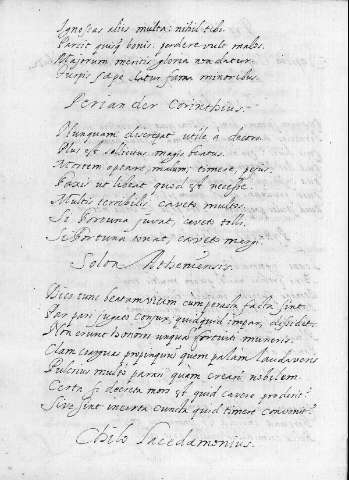 Ignoscas aliis multa: nihil tibi.
Parcit quisq bonis: perdere vult malos.
Majorum meritis gloria non datur.
Turpis sæpe datur fama minoribus.
Periander Corinthius.
Nunquam discrepat utile a decoro.
Plus est sollicitus magis beatus.
Mortem optare, malum; timere, pejus.
Faxis ut libeat quod est necesse.
Multis terribilis, caveto multos.
Si Fortuna juvat, caveto tolli.
Si Fortuna tonat, caveto mergi.
Solon Atheniensis.
Dico tunc beatam vitam cum peracta fata sint.
Par pari jugator conjux; quidquid impar, dissidet.
Non erunt honores unquam fortuiti muneris.
Clam coarguas propinquum quem palam laudaveris
Pulcrius multo parari quam creari nobilem.
Certa si decreta mors est quid cavere proderit?
Sive sint incerta cuncta quid timere convenit?
Chilo Lacedæmonius.